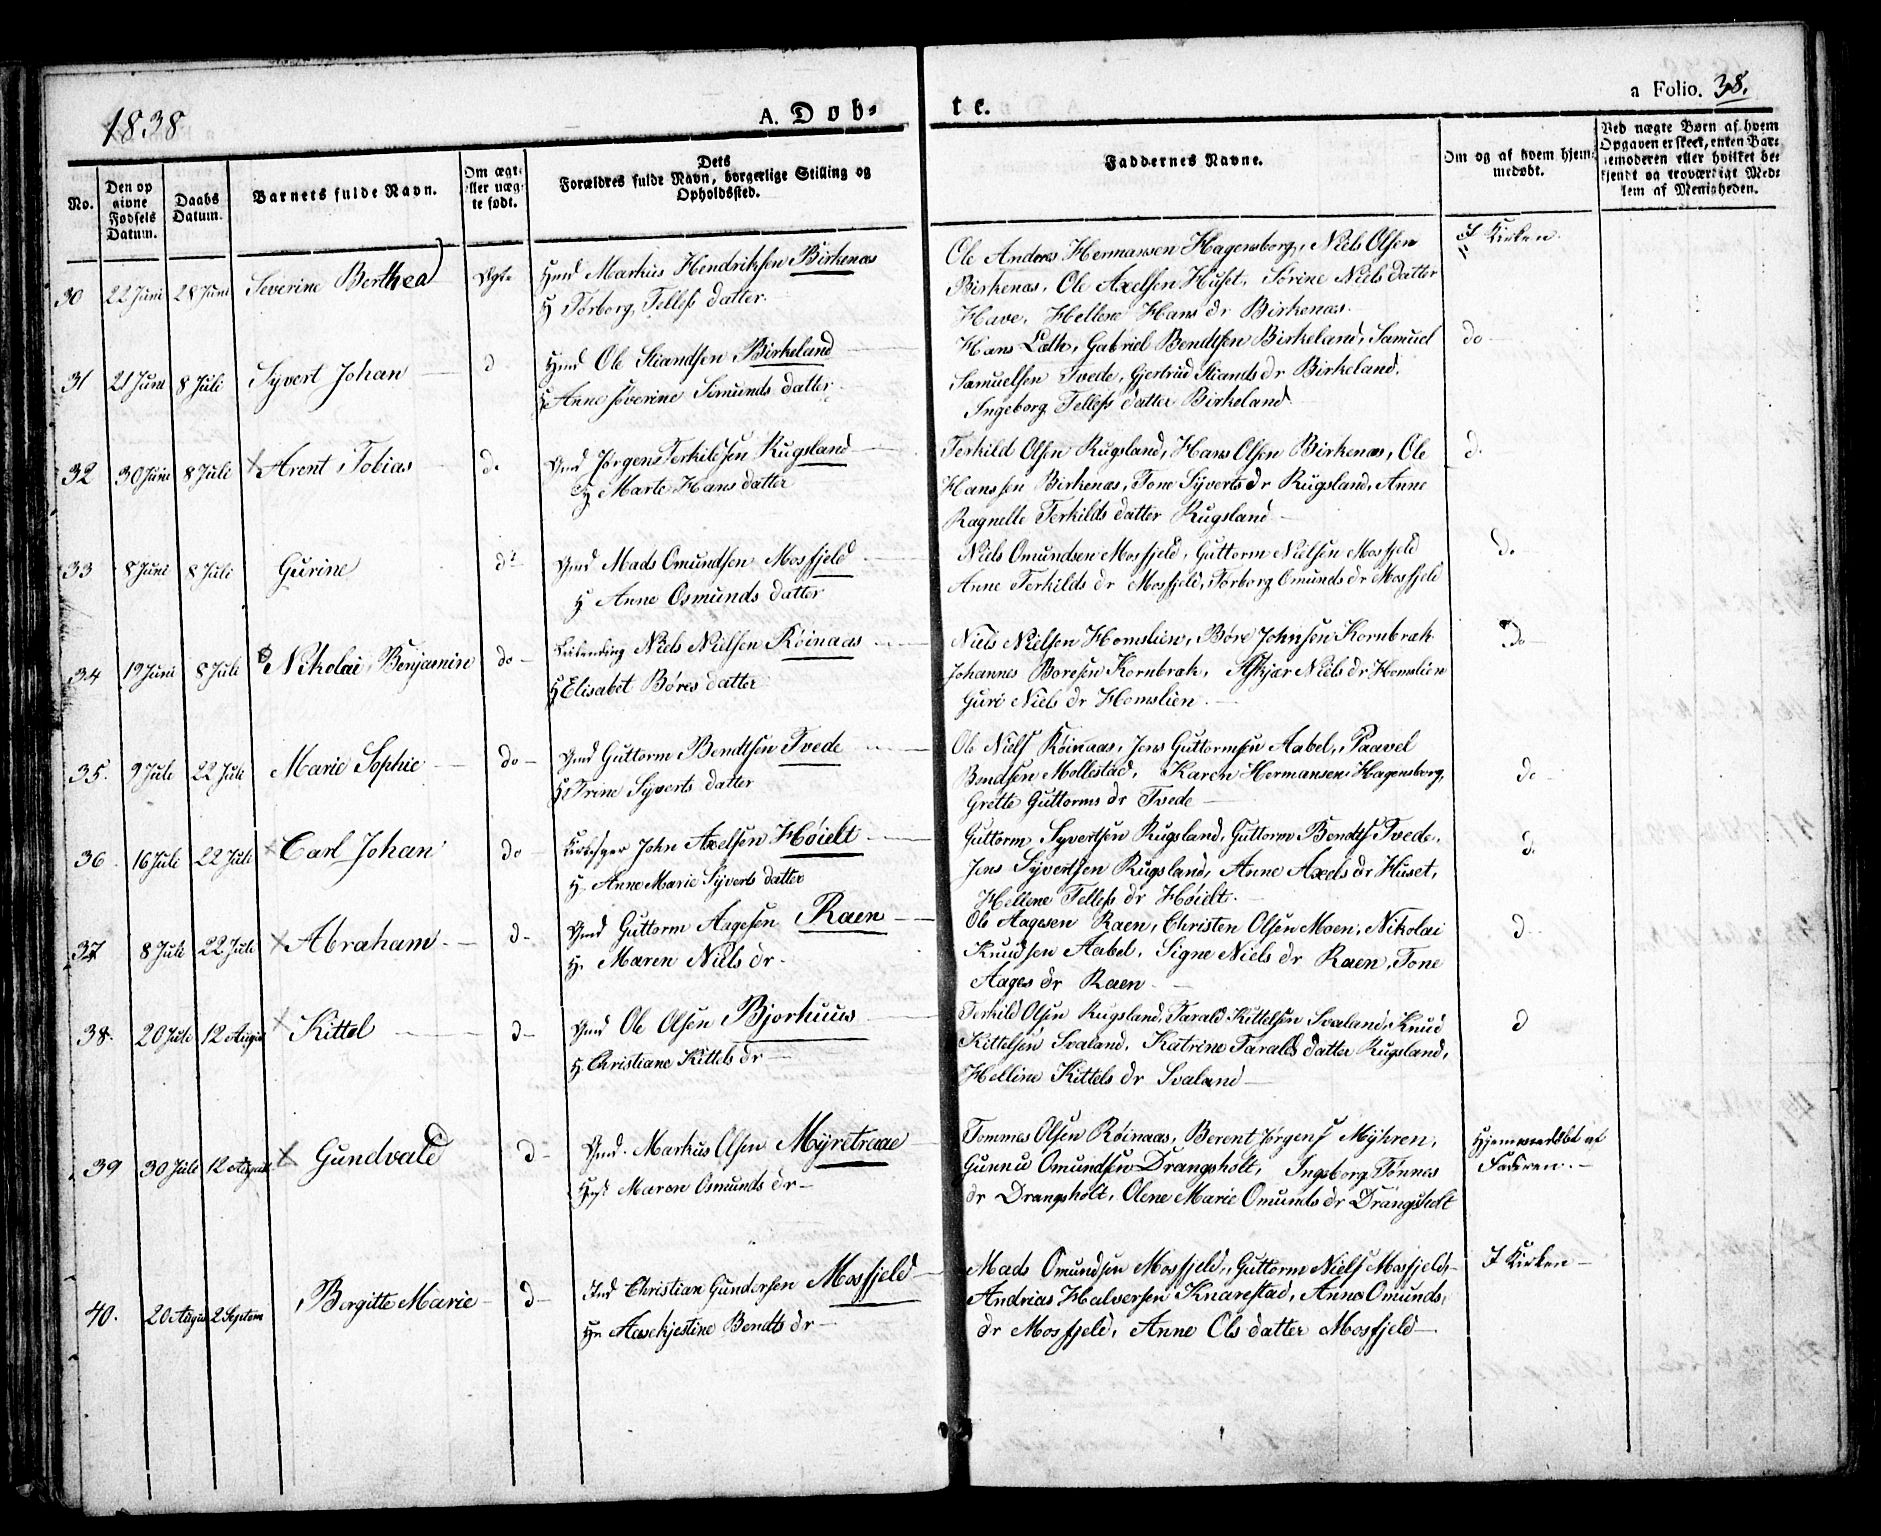 1838
A. Døb-
te.
a Folio. 38.
No.
Den op
givne
Fødsels
Datum.
Daabs
Datum.
Barnets fulde Navn.
Om ægte
eller uæg-
te født.
Dets
Forældres fulde Navn, borgerlige Stilling og
Opholdssted.
Faddernes Navne.
Om og af hvem hjem-
medøbt.
Ved uægte Børn af hvem
Opgaven er skeet, enten Bar-
nemoderen eller hvilket be-
kjendt og troværdigt Med-
lem af Menigheden.
30 22 Juni 28 Juni Severine Berthea Ægte Gmd Markus Hendriksen Birkenæs
H Torborg Tellefs datter.
Ole Anders Hermansen Hagensborg, Niels Olsen
Birkenæs, Ole Axelsen Huset, Sørine Niels datter
Have, Hellene Hans dr Birkenæs.
I Kirken.
31 21 Juni 8 Juli Syvert Johan d Gmd Ole Stiandsen Birkeland
H Anne Severine Simunds datter
Hans Lath, Gabriel Bendtsen Birkeland, Samuel
Samuelsen Tvede, Gjertrud Stiands dr Birkeland.
Ingeborg Tellefs datter Birkeland
do
32 30 Juni 8 Juli Arent Tobias do Gmd Jørgen Terkildsen Rugsland
H Marte Hans datter
Terkild Olsen Rugsland, Hans Olsen Birkenæs, Ole
Hanssen Birkenæs, Tone Syverts dr Rugsland, Anne
Ragnelle Terkilds datter Rugsland
do
33 8 Juni 8 Juli Gurine do Gmd Mads Omundsen Mosfjeld
H Anne Osmunds datter
Niels Omundsen Mosfjeld, Guttorm Nielsen Mosfjeld
Anne Terkilds dr Mosfjeld, Torborg Omunds dr Mosfjeld
do
34 19 Juni 8 Juli Nikolai Benjamin do Leilending Niels Nielsen Røinaas
H Elisabet Børes datter
Niels Nielsen Homslien, Børe Johnsen Kornbrak
Johannes Boresen Kornbrak, Askjær Niels dr Homslien
Guri Niels dr Homslien.
Do
35. 9 Juli 22 Juli Marie Sophie do Gmd Guttorm Bendtsen Tvede
H Trine Syverts datter
Ole Niels Røinaas, Jens Guttormsen Aabel, Paavel
Bendsen Mollestad, Karen Hermansen Hagensborg,
Grette Guttorms dr Tvede
do
36. 16 Juli 22 Juli Carl Johan do Kirkesger John Axelsen Høiebt
H. Anne Marie Syverts datter
Guttorm Syvertsen Rugsland, Guttorm Bendts Tvede,
Jens Syvertsen Rugsland, Anne Axels dr Huset,
Hellene Tellefs dr Høiebt.
d.
37 8 Juli 22 Juli Abraham d Gmd Guttorm Aagesen Raen
H. Maren Niels dr.
Ole Aagesen Raen, Christen Olsen Moen, Nikolai
Knudsen Aabel, Signe Niels dr Raen, Tone
Aages dr Raen
d
38. 20 Juli 12 August Kittel d Gmd Ole Olsen Bjorhuus
H. Christiane Kittels dr
Terkild Olsen Rugsland, Tarald Kittelsen Svaland, Knud
Kittelsen Svaland, Katrine Taralds datter Rugsland,
Helline Kittels dr Svaland
d
39 30 Juli 12 August Gundvald d Gmd. Markus Olsen Myretraae
Maren Osmunds dr
Tommes Olsen Røinaas, Berent Jørgens Myhren,
Gunnu Omundsen Drangsholt, Ingeborg Tønnes
dr Drangsholt, Olene Marie Omunds dr Drangsholt
Hjemmedøbt af
Faderen.
40. 20 August 2 Septem Birgitte Marie d Ind Christian Gundersen Mosfjeld
H. Aasekjestine Bendts dr
Mads Omundsen Mosfjeld, Guttorm Niels Mosfjeld,
Andrias Halversen Knarestad, Anne Omunds,
dr Mosfjeld, Anne Ols datter Mosfjeld
I Kirken